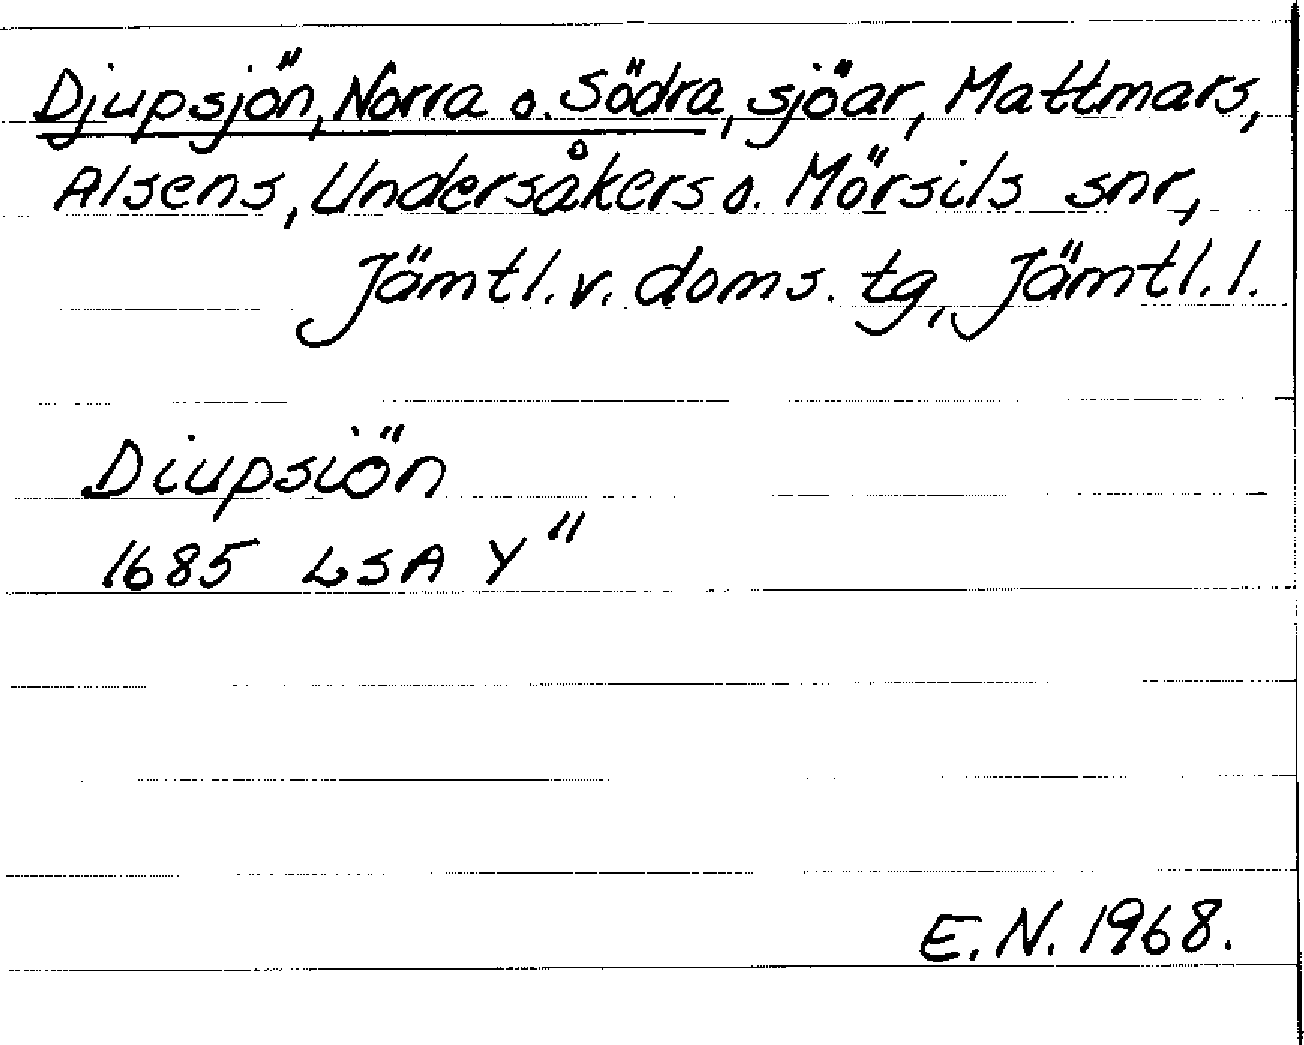 Djupsjön, Norra o. Södra, sjöar, Mattmars,
Alsens, Undersåkers o. Mörsils snr,
Jämtl. v. doms. tg, Jämtl. l.
Diupsiön
1685 LSA Y"
E. N. 1968.